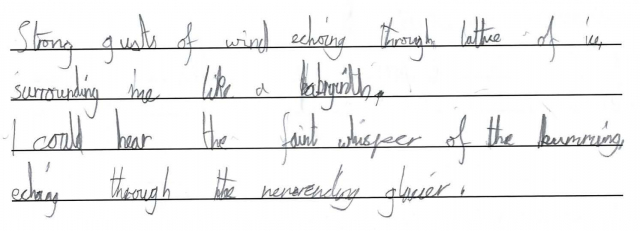 Strong gusts of wind echoing through lattice of ice,
surrounding me like a labyrinth,
I could hear the faint whisper of the humming,
echoing through the neverending glacier.